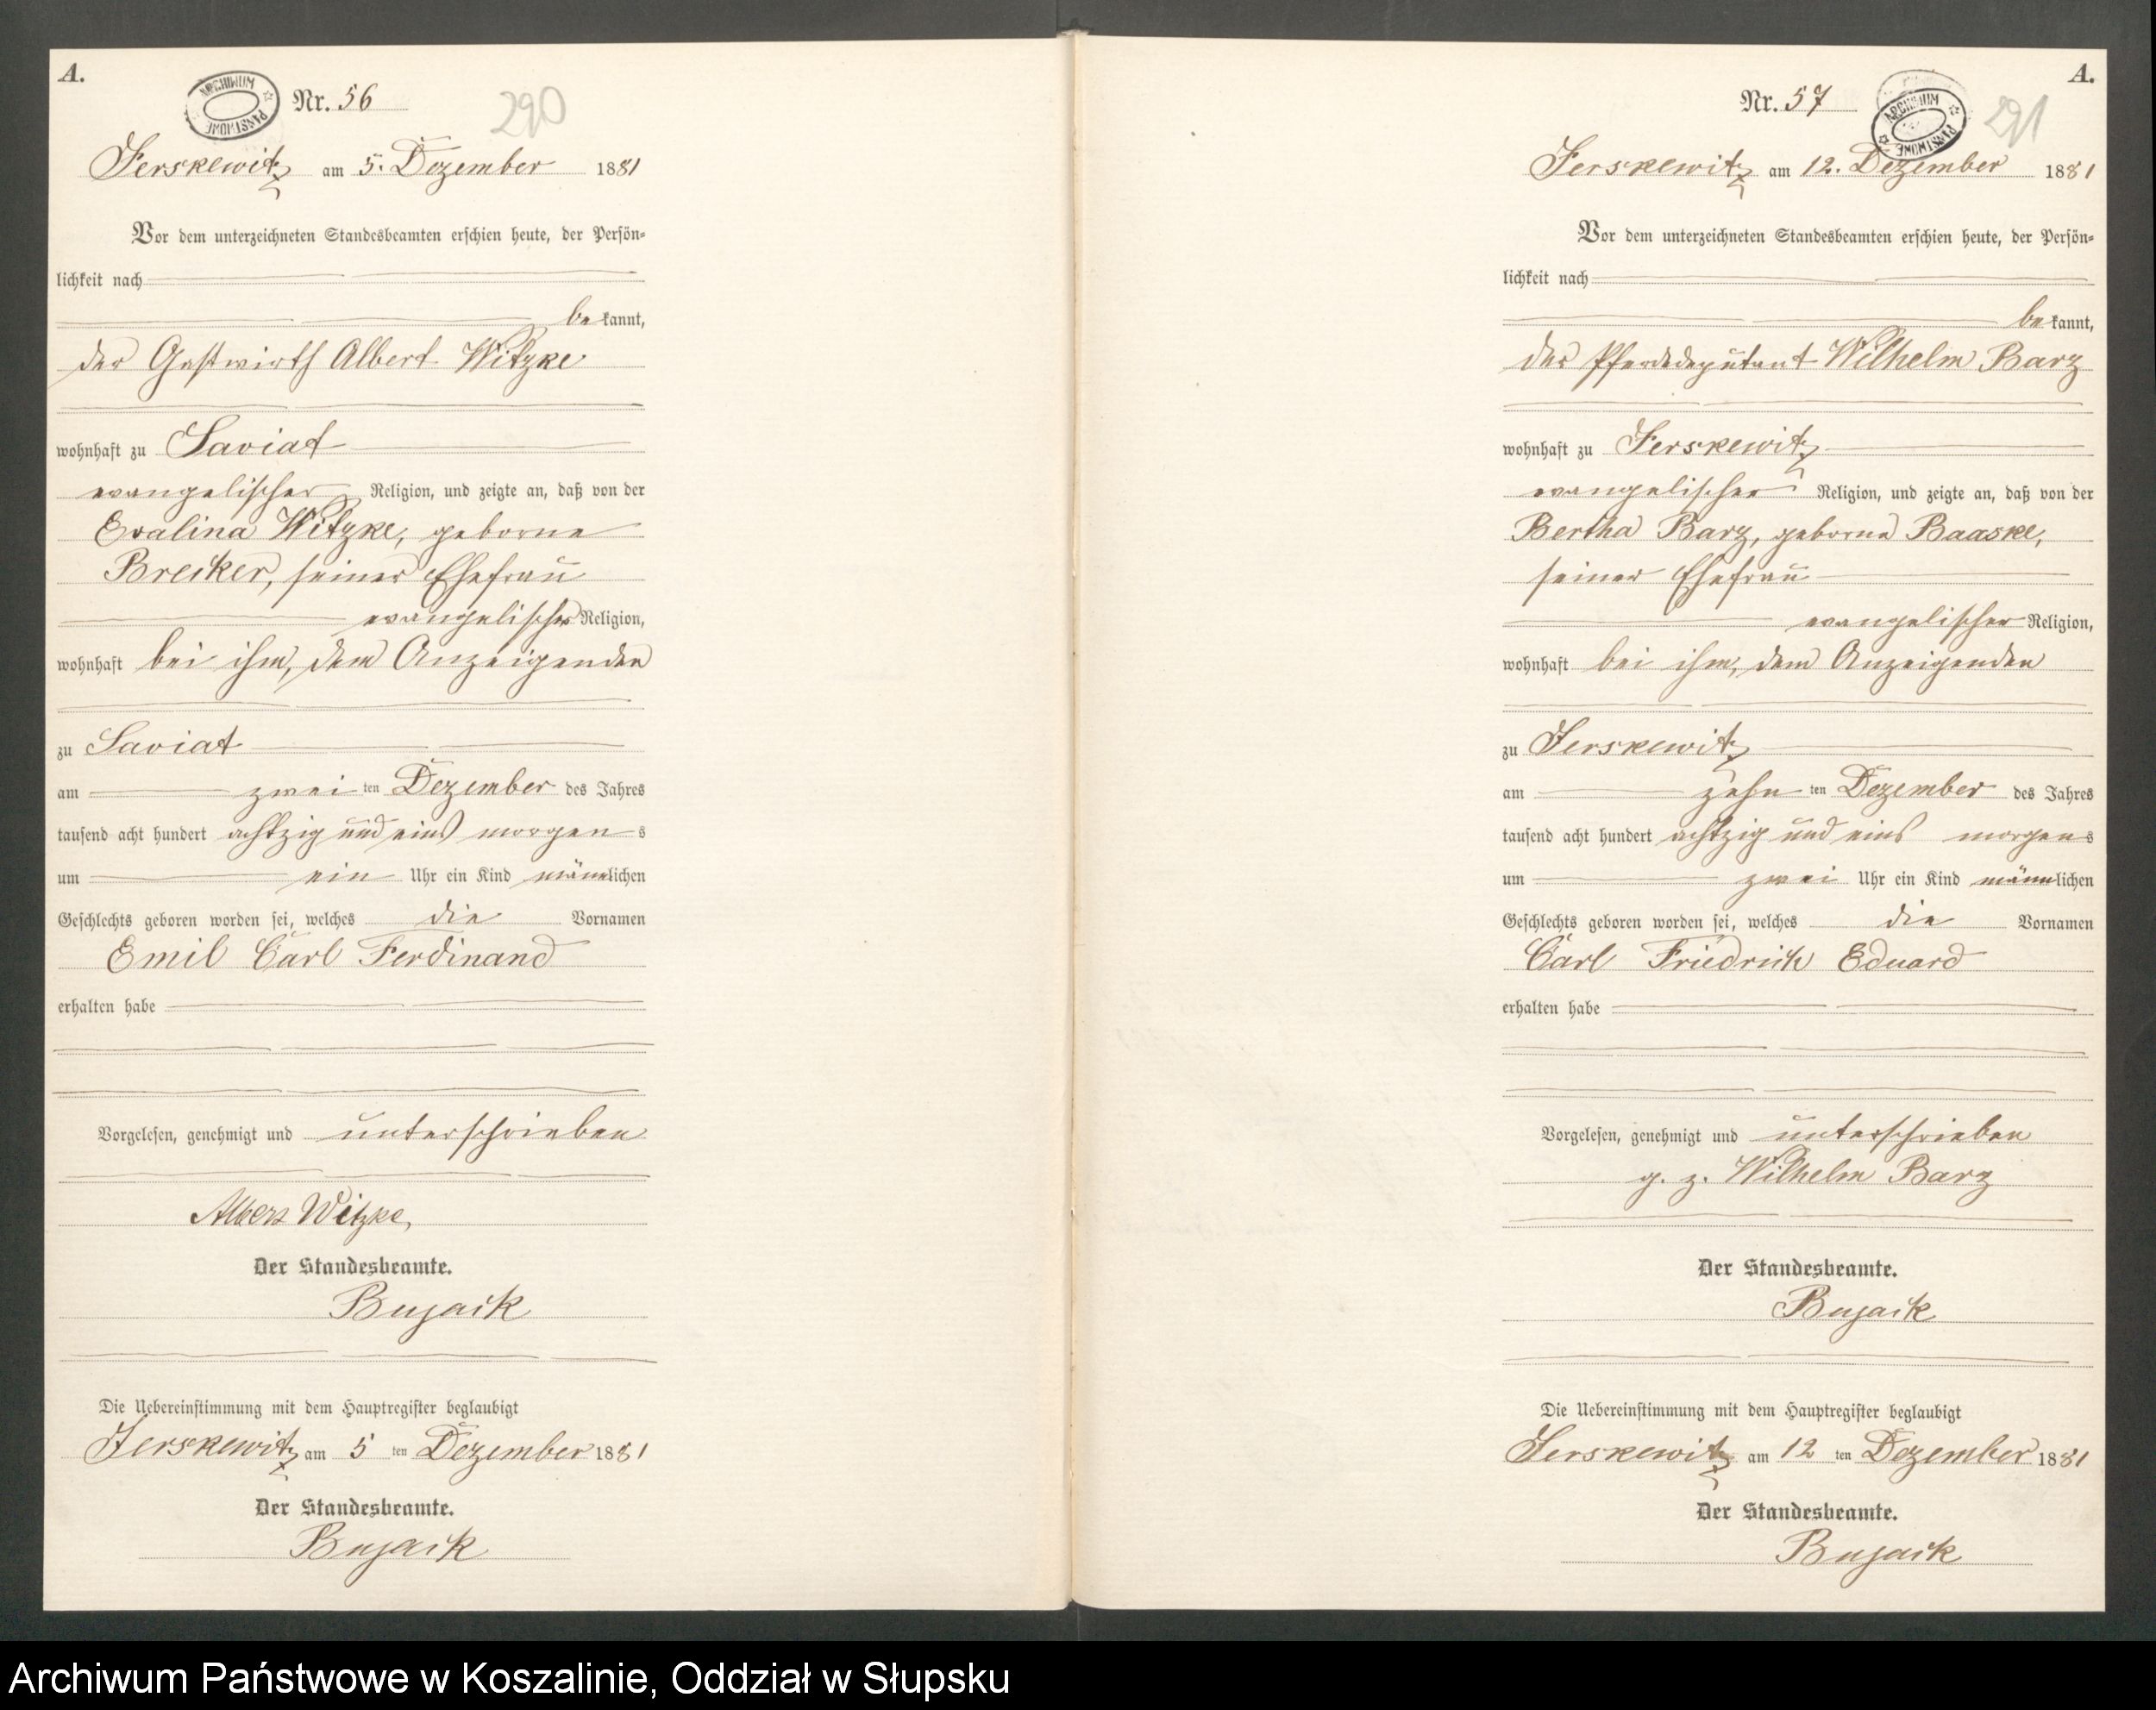 A.
ARCHIWUM PAŃSTWOWE
Nr. 56
290
Jerskewitz am 5. Dezember 1881
Vor dem unterzeichneten Standesbeamten erschien heute, der Persön-
lichkeit nach
bekannt,
der Gastwirth Albert Witzke
wohnhaft zu Saviat
evangelischer Religion, und zeigte an, daß von der
Evalina Witzke, geborne
Breiker, seiner Ehefrau
evangelischer Religion,
wohnhaft bei ihm, dem Anzeigenden
zu Saviat
am zweiten Dezember des Jahres
tausend acht hundert achtzig und eins morgens
um ein Uhr ein Kind männlichen
Geschlechts geboren worden sei, welches die Vornamen
Emil Carl Ferdinand
erhalten habe
Vorgelesen, genehmigt und unterschrieben
Albert Witzke,
Der Standesbeamte.
Bujack
Die Uebereinstimmung mit dem Hauptregister beglaubigt
Jerskewitz am 5 ten Dezember 1881
Der Standesbeamte.
Bujack
A.
Nr. 57
ARCHIWUM PAŃSTWOWE
291
Jerskewitz am 12. Dezember 1881
Vor dem unterzeichneten Standesbeamten erschien heute, der Persön-
lichkeit nach
bekannt,
der Pferdedeputant Wilhelm Barz
wohnhaft zu Jerskewitz
evangelischer Religion, und zeigte an, daß von der
Bertha Barz, geborne Baaske,
seiner Ehefrau
evangelischer Religion,
wohnhaft bei ihm, dem Anzeigenden
zu Jerskewitz
am zehnten Dezember des Jahres
tausend acht hundert achtzig und eins morgens
um zwei Uhr ein Kind männlichen
Geschlechts geboren worden sei, welches die Vornamen
Carl Friedrich Eduard
erhalten habe
Vorgelesen, genehmigt und unterschrieben
g. z. Wilhelm Barz
Der Standesbeamte.
Bujack
Die Uebereinstimmung mit dem Hauptregister beglaubigt
Jerskewitz am 12 ten Dezember 1881
Der Standesbeamte.
Bujack
Archiwum Państwowe w Koszalinie, Oddział w Słupsku